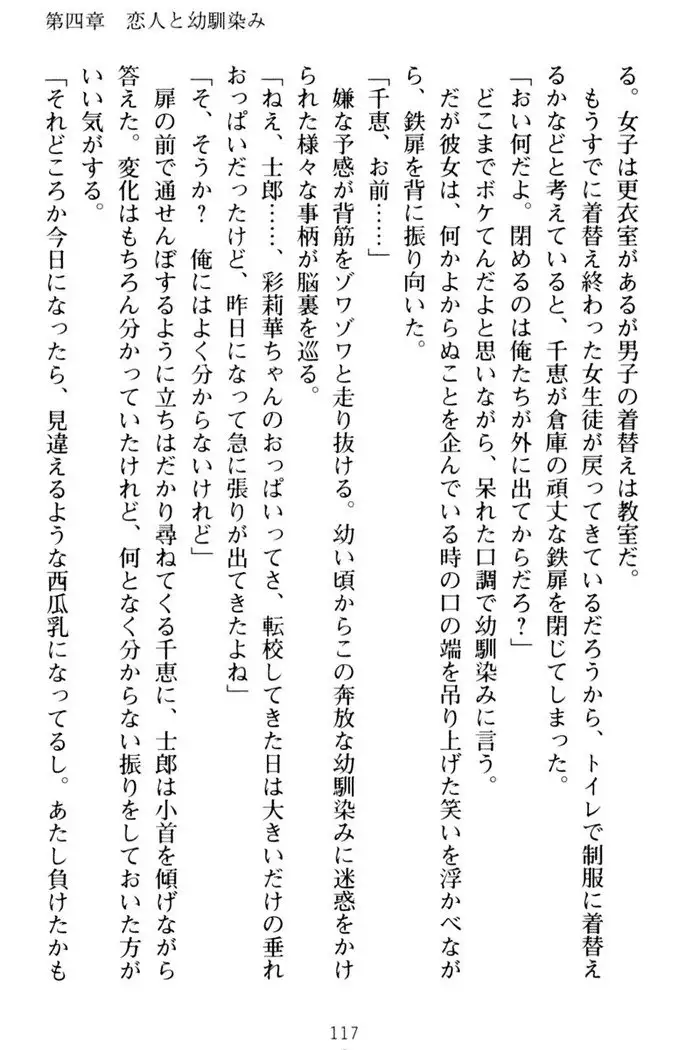 第四章　恋人と幼馴染み
る。女子は更衣室があるが男子の着替えは教室だ。
もうすでに着替え終わった女生徒が戻ってきているだろうから、トイレで制服に着替え
るかなどと考えていると、千恵が倉庫の頑丈な鉄扉を閉じてしまった。
「おい何だよ。閉めるのは俺たちが外に出てからだろ？」
どこまでボケてんだよと思いながら、呆れた口調で幼馴染みに言う。
だが彼女は、何かよからぬことを企んでいる時の口の端を吊り上げた笑いを浮かべなが
ら、鉄扉を背に振り向いた。
「千恵、お前……」
嫌な予感が背筋をゾワゾワと走り抜ける。幼い頃からこの奔放な幼馴染みに迷惑をかけ
られた様々な事柄が脳裏を巡る。
「ねえ、士郎……、彩莉華ちゃんのおっぱいってさ、転校してきた日は大きいだけの垂れ
おっぱいだったけど、昨日になって急に張りが出てきたよね」
「そ、そうか？　俺にはよく分からないけれど」
扉の前で通せんぼするように立ちはだかり尋ねてくる千恵に、士郎は小首を傾げながら
答えた。変化はもちろん分かっていたけれど、何となく分からない振りをしておいた方が
いい気がする。
「それどころか今日になったら、見違えるような西瓜乳になってるし。あたし負けたかも
117